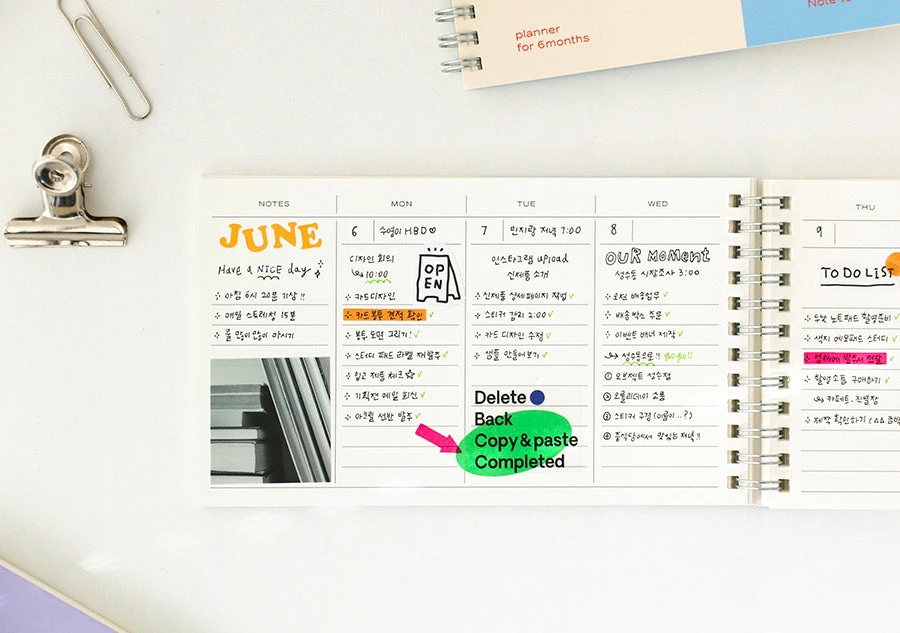 planner
for 6months
Note to
NOTES
MON
TUE
WED
THU
JUNE
Have a NICE day
아침 6시 20분 기상!!
매일 스트레칭 15분
물 많이많이 마시기
6
수영이 HBD♡
디자인 회의
10:00
OPEN
카드디자인
카드봉투 견적 확인
봉투 도면 그리기!
스터디 패드 라벨 재발주
입고 제품 체크☆
기획전 메일 회신
아크릴 선반 발주
7
민지랑 저녁 7:00
인스타그램 upload
신제품 소개
신제품 상세페이지 작업
스티커 감리 2:00
카드 디자인 수정
샘플 만들어보기
Delete
Back
Copy & paste
Completed
8
OUR MOMENT
성수동 시장조사 3:00
오전 배송업무
배송박스 주문
이벤트 배너 제작
성수동으로!! gogo!!
① 오브젝트 성수점
② 오롤리데이 쇼룸
③ 스티커 구경 (이름이...?)
④ 중식당에서 맛있는 저녁!!
9
TO DO LIST
노트패드 촬영준비
색지 메모패드 스터디
업체에 발주서 전달
촬영소품 구매하기
제작 확인하기